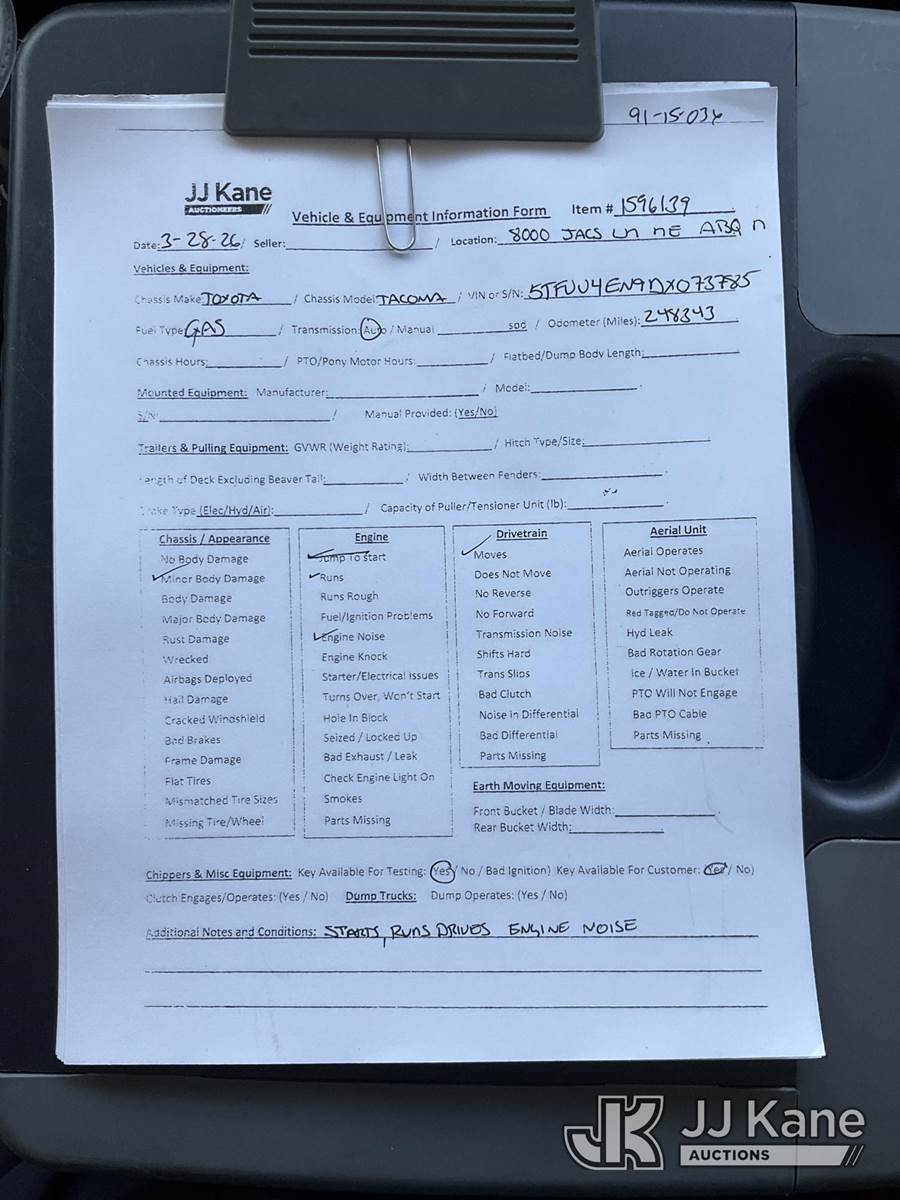 91-15-034
JJ Kane
AUCTIONEERS
Vehicle & Equipment Information Form Item # 1596139
Date: 3-28-26 / Seller: / Location: 8000 JACS LN NE ABQ N
Vehicles & Equipment:
Chassis Make: TOYOTA / Chassis Model: TACOMA / VIN or S/N: 5TFUU4EN9DX073785
Fuel Type: GAS / Transmission: Auto / Manual spd / Odometer (Miles): 248343
Chassis Hours: / PTO/Pony Motor Hours: / Flatbed/Dump Body Length:
Mounted Equipment: Manufacturer: / Model:
S/N: / Manual Provided: (Yes/No)
Trailers & Pulling Equipment: GVWR (Weight Rating): / Hitch Type/Size:
Length of Deck Excluding Beaver Tail: / Width Between Fenders:
Brake Type (Elec/Hyd/Air): / Capacity of Puller/Tensioner Unit (lb):
Chassis / Appearance
No Body Damage
✓ Minor Body Damage
Body Damage
Major Body Damage
Rust Damage
Wrecked
Airbags Deployed
Hail Damage
Cracked Windshield
Bad Brakes
Frame Damage
Flat Tires
Mismatched Tire Sizes
Missing Tire/Wheel
Engine
✓ Jump To Start
✓ Runs
Runs Rough
Fuel/Ignition Problems
✓ Engine Noise
Engine Knock
Starter/Electrical Issues
Turns Over, Won't Start
Hole In Block
Seized / Locked Up
Bad Exhaust / Leak
Check Engine Light On
Smokes
Parts Missing
Drivetrain
✓ Moves
Does Not Move
No Reverse
No Forward
Transmission Noise
Shifts Hard
Trans Slips
Bad Clutch
Noise in Differential
Bad Differential
Parts Missing
Aerial Unit
Aerial Operates
Aerial Not Operating
Outriggers Operate
Red Tagged/Do Not Operate
Hyd Leak
Bad Rotation Gear
Ice / Water In Bucket
PTO Will Not Engage
Bad PTO Cable
Parts Missing
Earth Moving Equipment:
Front Bucket / Blade Width:
Rear Bucket Width:
Chippers & Misc Equipment: Key Available For Testing: (Yes / No / Bad Ignition) Key Available For Customer: (Yes / No)
Clutch Engages/Operates: (Yes / No) Dump Trucks: Dump Operates: (Yes / No)
Additional Notes and Conditions: STARTS, RUNS DRIVES ENGINE NOISE
JK JJ Kane
AUCTIONS